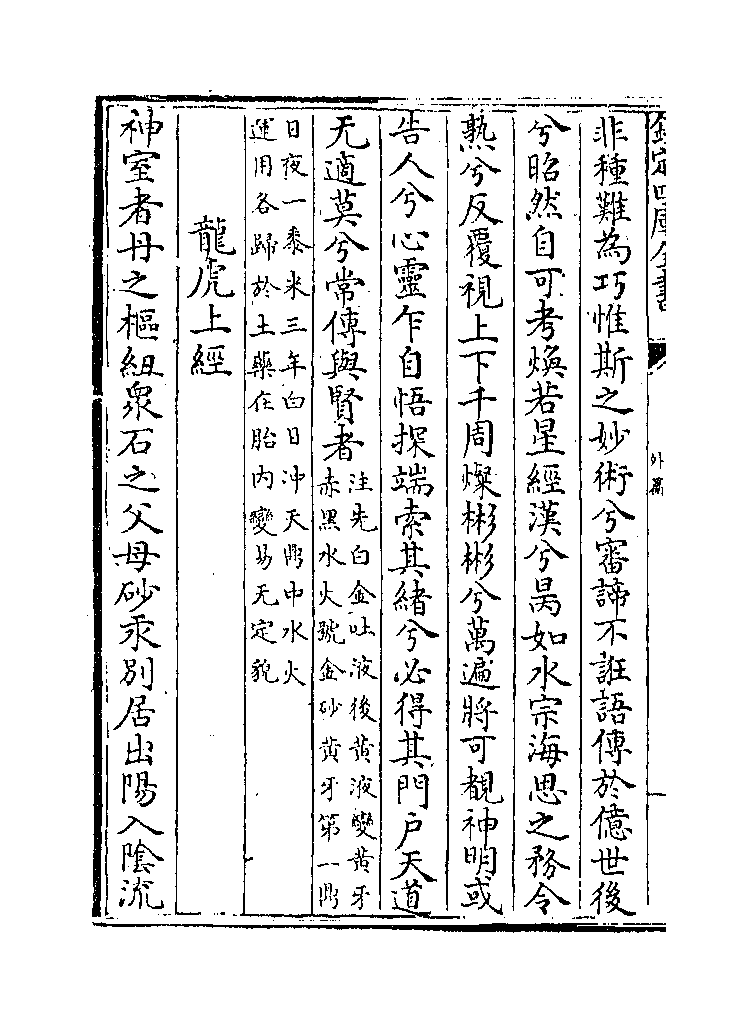 欽定四庫全書
外篇
非種難為巧惟斯之妙術兮審諦不誑語傳於億世後
兮昭然自可考煥若星經漢兮昺如水宗海思之務令
熟兮反覆視上下千周燦彬彬兮萬遍將可覩神明或
告人兮心靈乍自悟探端索其緒兮必得其門户天道
无適莫兮常傳與賢者注先白金吐液後黄液變黄牙
赤黑水火號金砂黄牙第一鼎
日夜一黍米三年白日冲天鼎中水火
運用各歸於土藥在胎内變易无定貌
龍虎上經
神室者丹之樞紐衆石之父母砂汞別居出陽入隂流